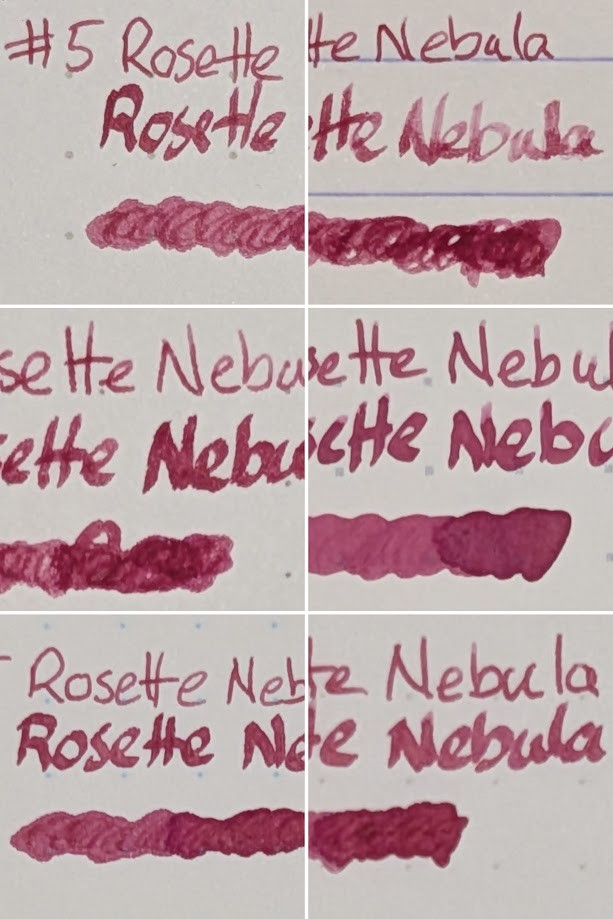 #5 Rosette
Rosette
tte Nebula
tte Nebula
sette Nebu
ette Nebu
sette Nebul
ette Nebu
Rosette Neb
Rosette Ne
te Nebula
e Nebula